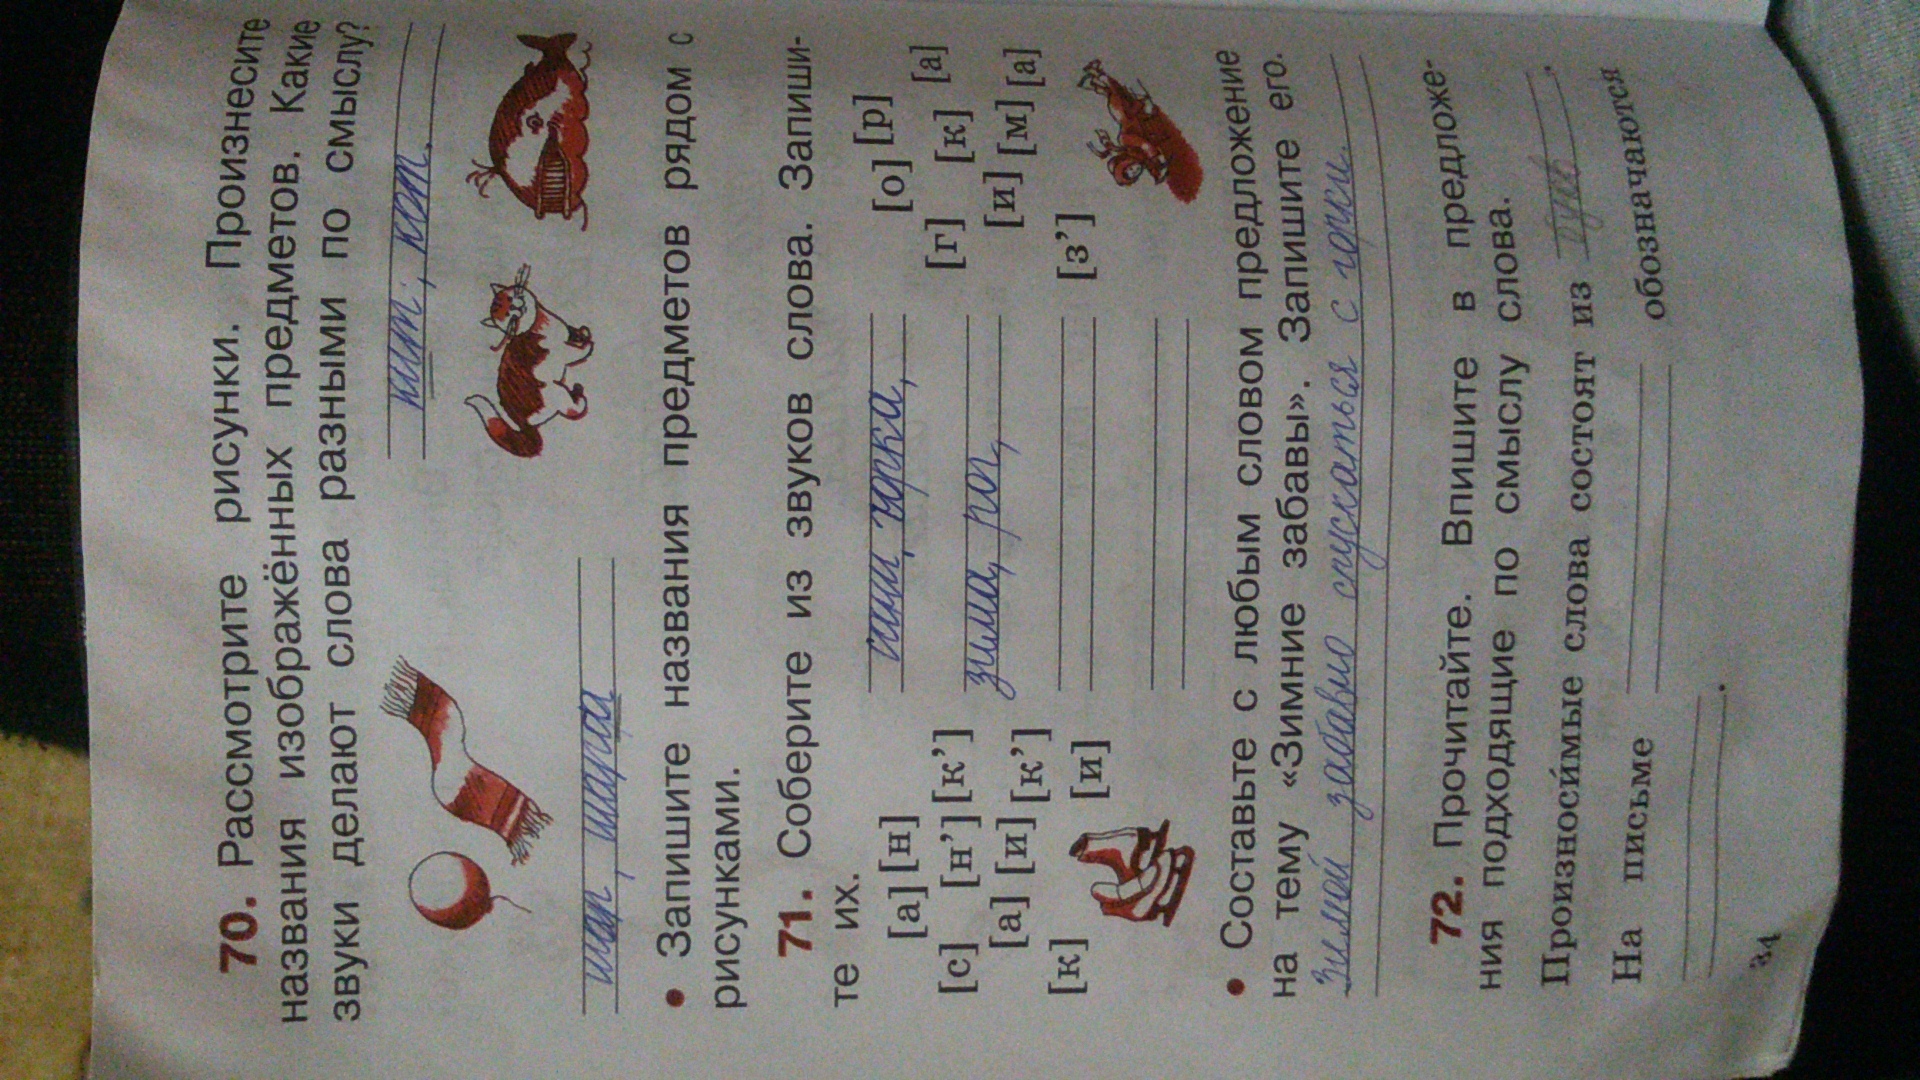 70. Рассмотрите рисунки. Произнесите
названия изображённых предметов. Какие
звуки делают слова разными по смыслу?
кит, кот.
шар, шарф
• Запишите названия предметов рядом с
рисунками.
71. Соберите из звуков слова. Запиши-
те их.
[а] [н] сани, горка, [о] [р]
[с] [н’] [к’] [г] [к] [а]
зима, рог,
[а] [и] [к’] [и] [м] [а]
[к] [и] [з’]
• Составьте с любым словом предложение
на тему «Зимние забавы». Запишите его.
Зимой забавно спускаться с горки.
72. Прочитайте. Впишите в предложе-
ния подходящие по смыслу слова.
Произноси́мые слова состоят из букв .
На письме обозначаются
.
34